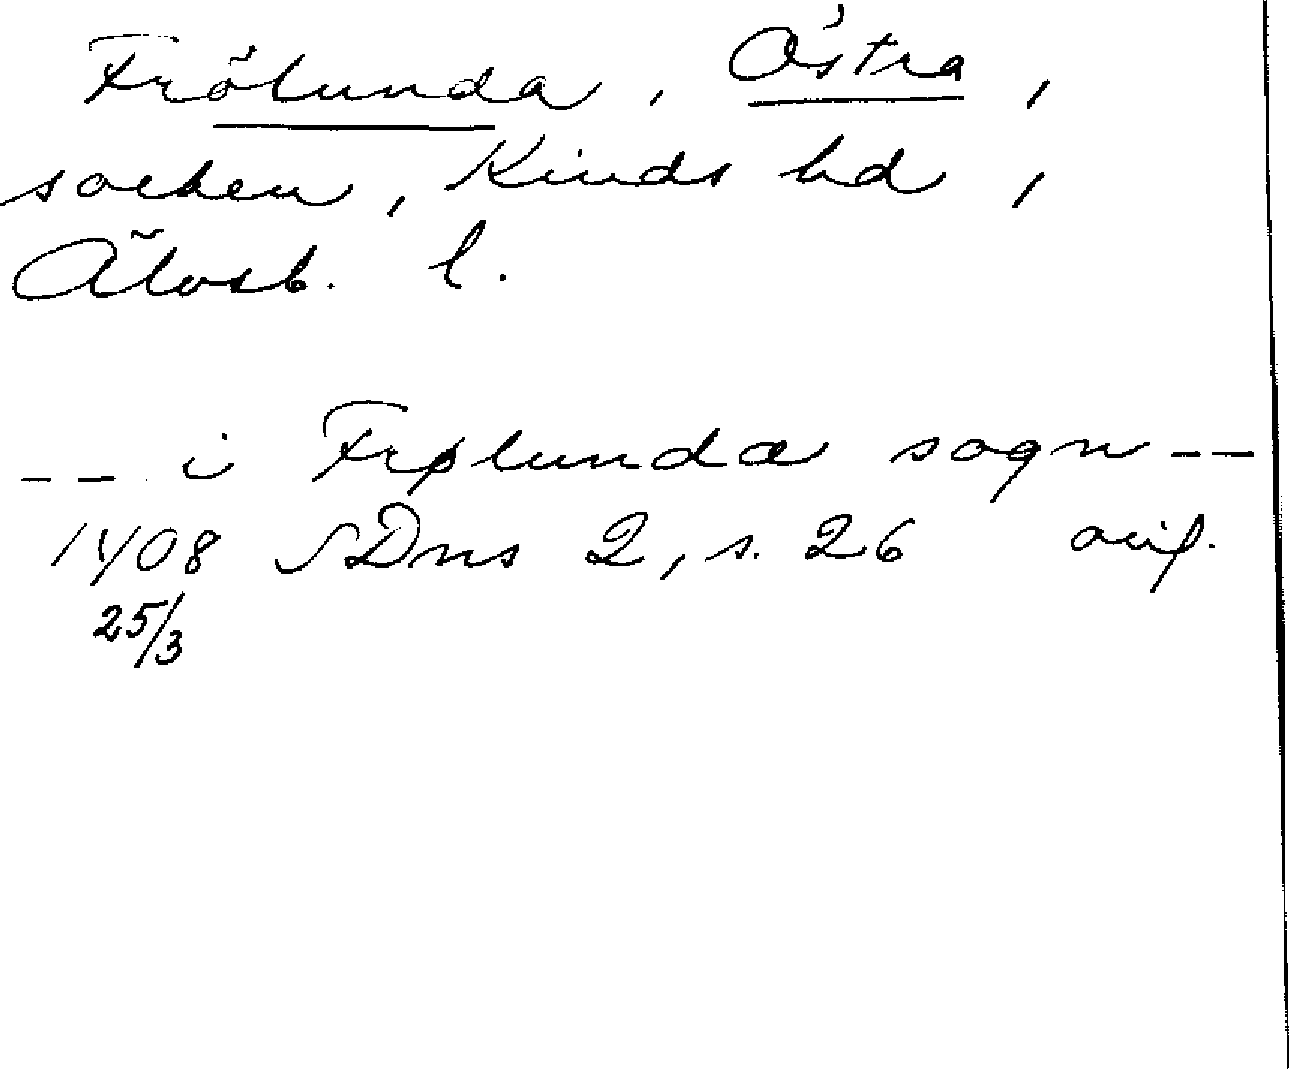 Frölunda, Östra,
socken, Kinds hd,
Älvsb. l.
-- i Frølundæ sogn --
1408 SDns 2, s. 26 avs.
25/3